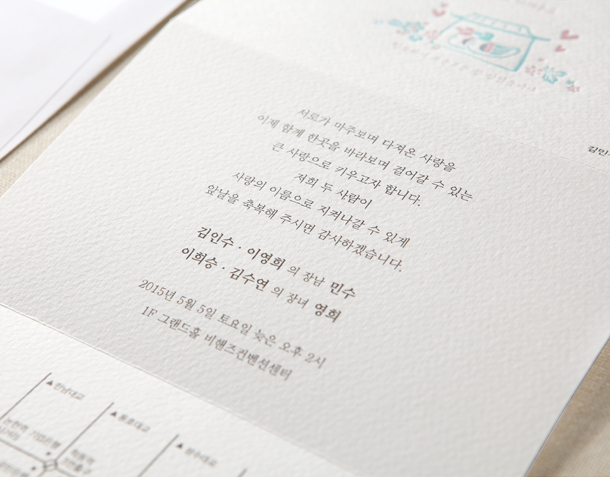 서로가 마주보며 다져온 사랑을
이제 함께 한곳을 바라보며 걸어갈 수 있는
큰 사랑으로 키우고자 합니다.
저희 두 사람이
사랑의 이름으로 지켜나갈 수 있게
앞날을 축복해 주시면 감사하겠습니다.
김인수 · 이영희 의 장남 민수
이희승 · 김수연 의 장녀 영희
2015년 5월 5일 토요일 늦은 오후 2시
1F 그랜드홀 비헨즈컨벤션센터
김인
▲한남대교
▲동호대교
▲성수대교
기업은행